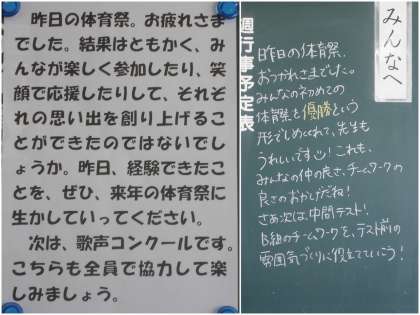 昨日の体育祭。お疲れさま
でした。結果はともかく、み
んなが楽しく参加したり、笑
顔で応援したりして、それぞ
れの思い出を創り上げること
ができたのではないでし
ょうか。昨日、経験できたこ
とを、ぜひ、来年の体育祭に
生かしていってください。
次は、歌声コンクールです。
こちらも全員で協力して楽
しみましょう。
みんなへ
週行事予定表
昨日の体育祭、
おつかれさまでした。
みんなの初めての
体育祭を優勝という
形でしめくくれて、先生も
うれしいです！これも、
みんなの仲の良さ、チームワークの
良さのおかげだね！
さあ次は、中間テスト！
B組のチームワークを、テスト前の
雰囲気づくりに役立てていこう！